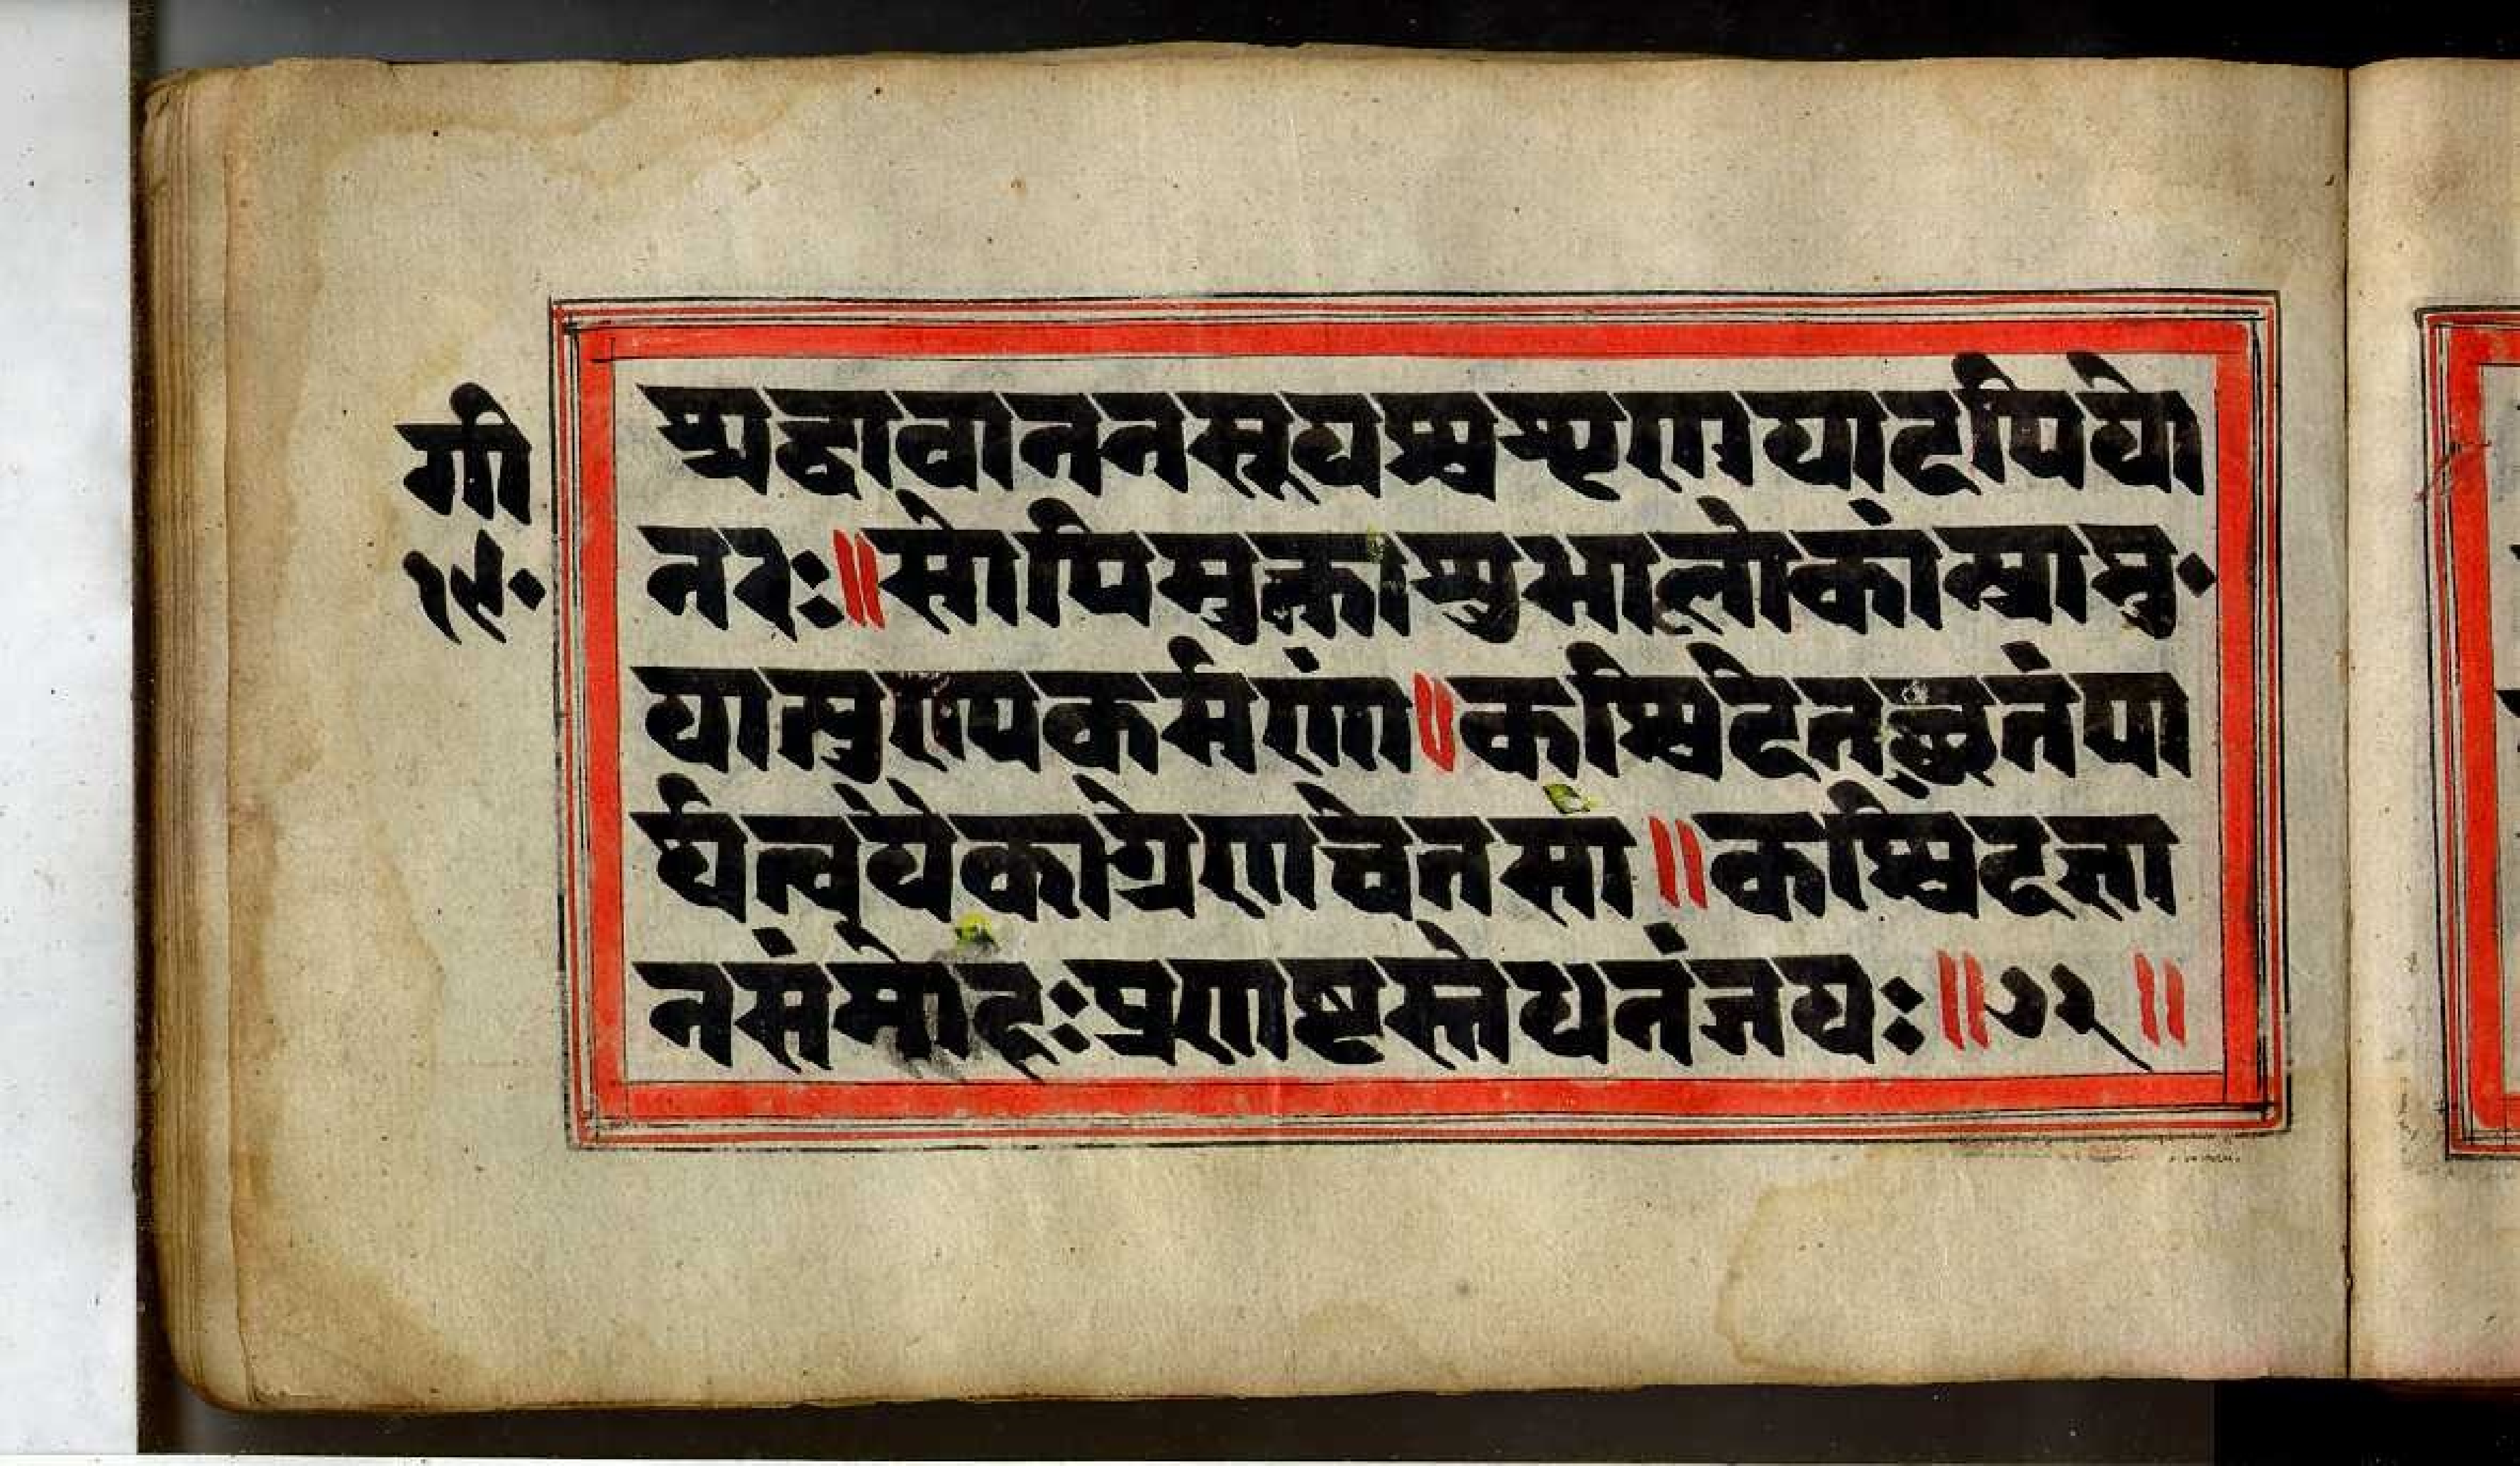 गी
१९०
श्रद्धावाननसूयश्चशृणुयादपियो
नरः॥सोपिमुक्ताशुभालोकांस्प्राप्नु॰
यात्सुरापपकर्मणां॥कश्चिदेतछ्रुतंपा
र्थत्वयेकाग्रेणचेतसा॥कश्चिदज्ञा
नसंमोहःप्रणष्टस्तेधनंजयः॥७२॥